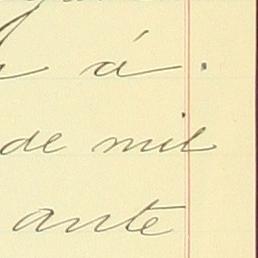 á.
de mil
ante